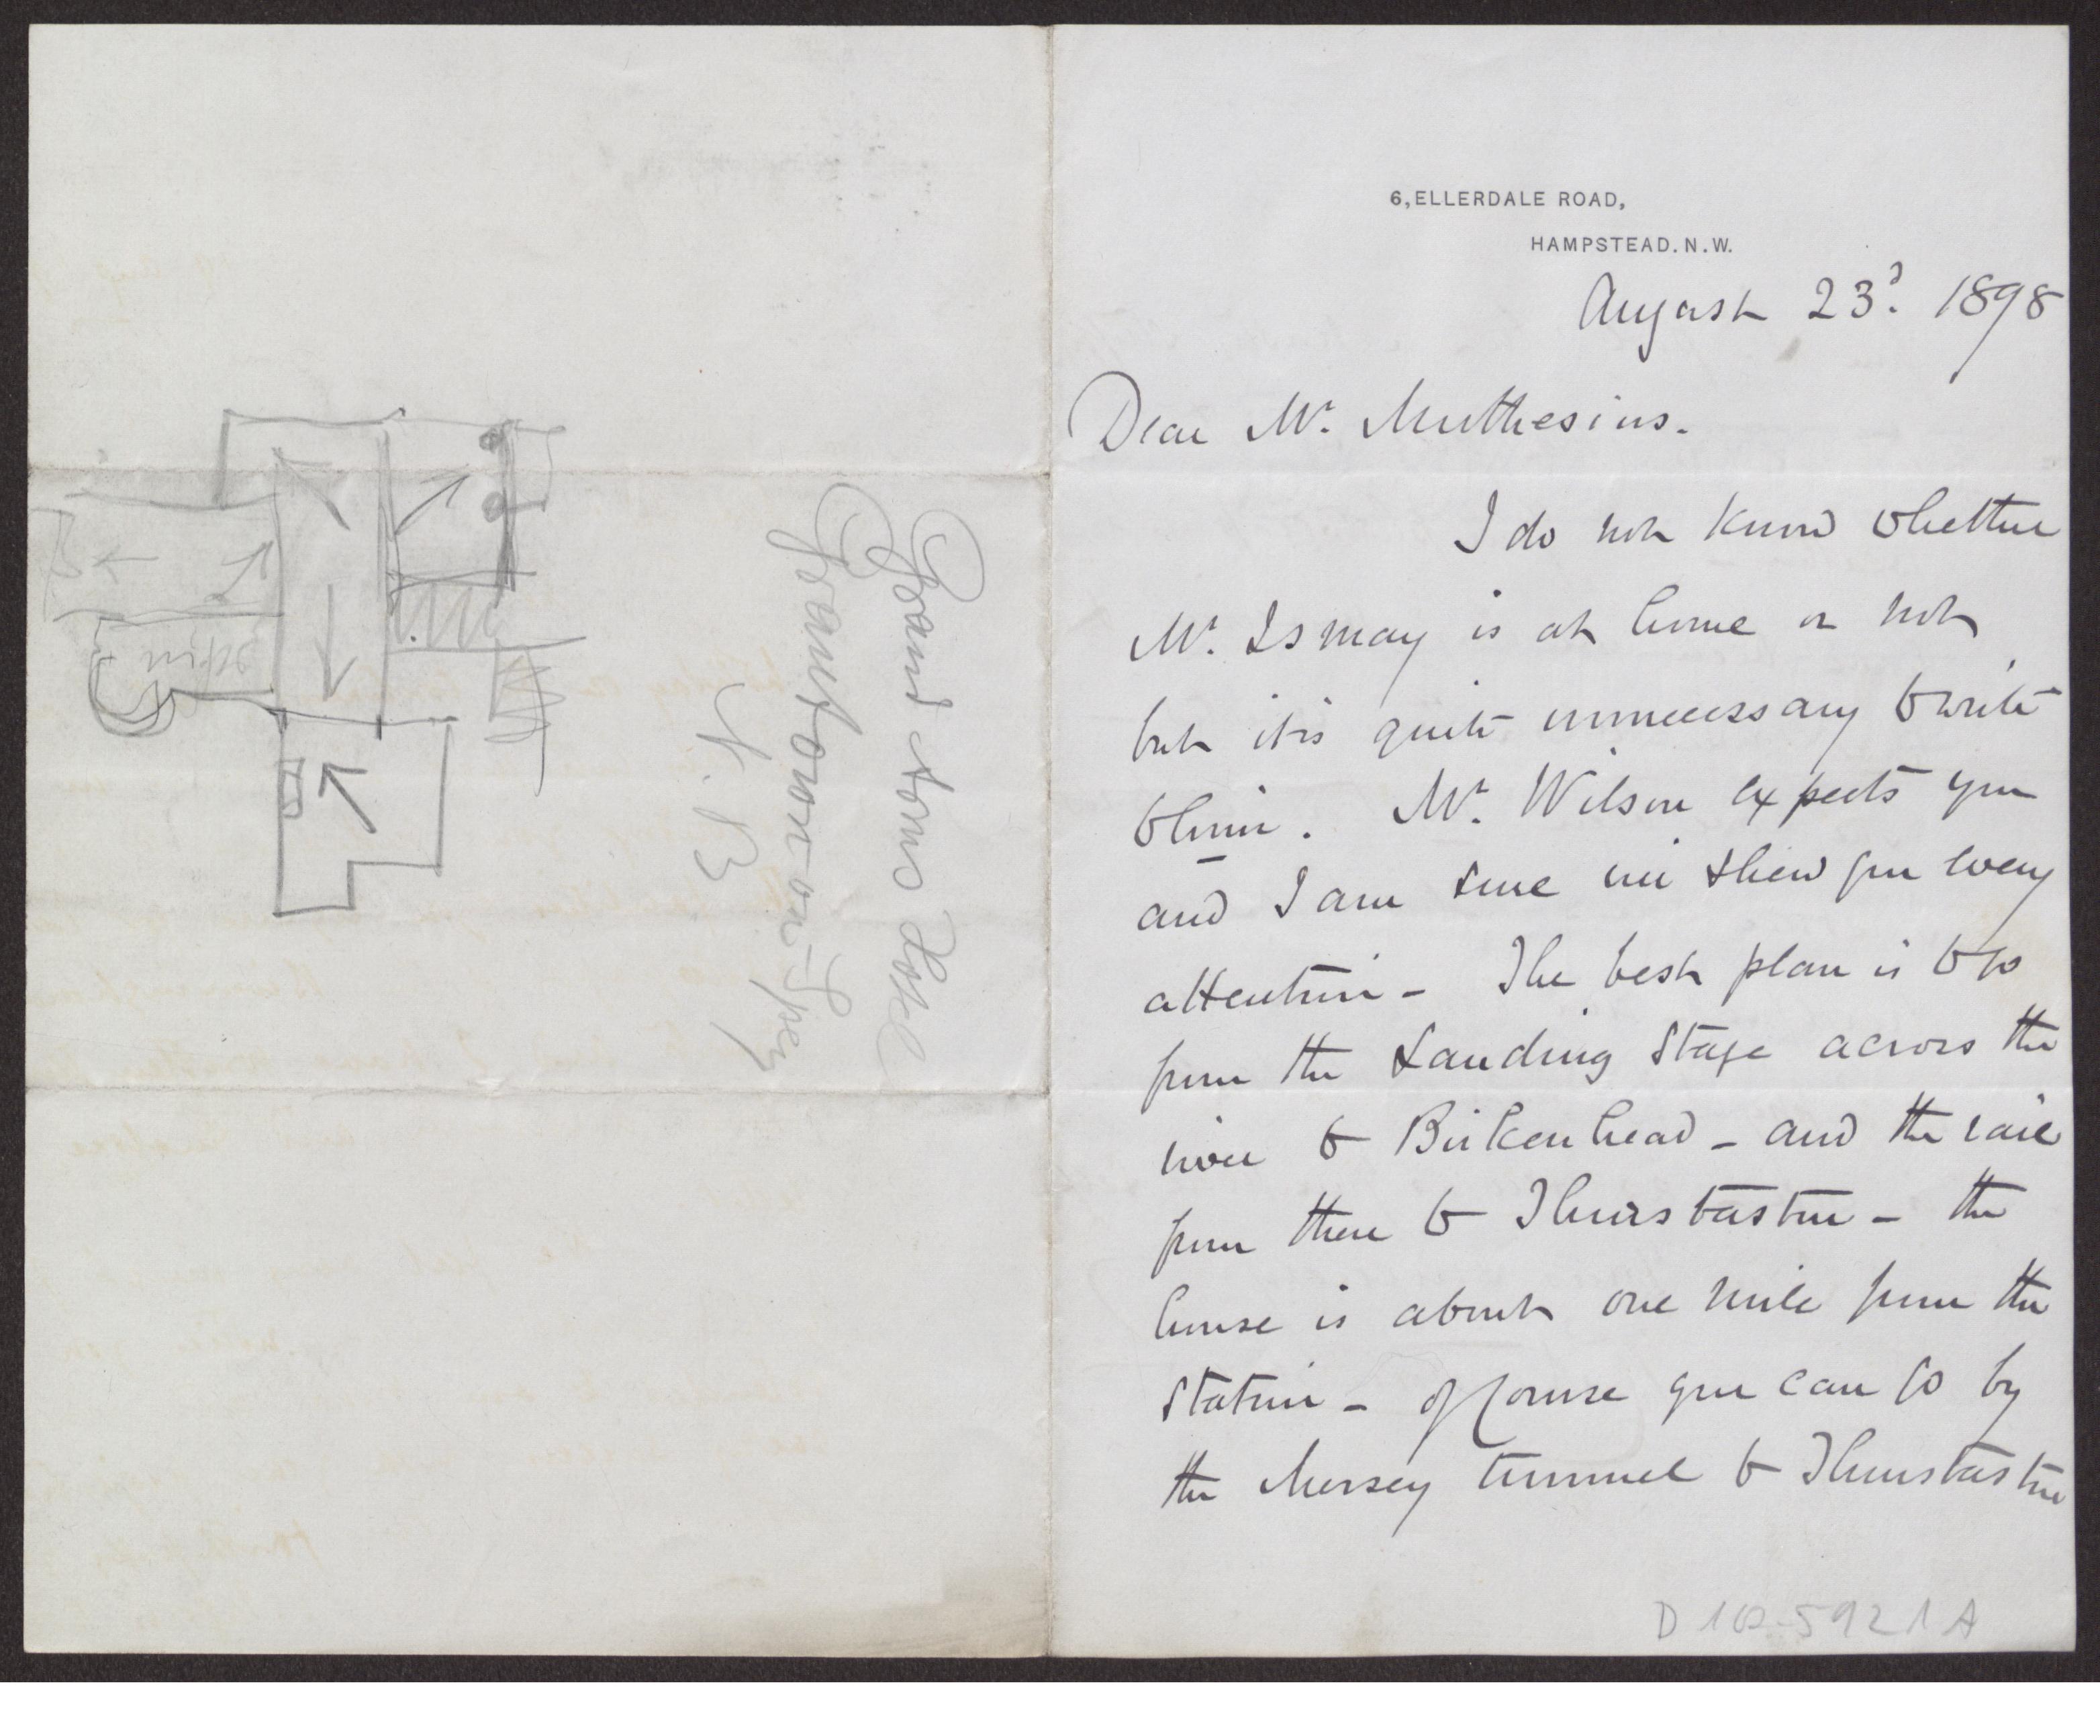 Grand Arms Hotel
Grantown-on-Spey
N. B
6, ELLERDALE ROAD,
HAMPSTEAD. N. W.
August 23d. 1898
Dear Mr. Muthesius.
I do not know whether
Mr. Ismay is at home or not
but it is quite unnecessary to write
to him. Mr. Wilson expects you
and I am sure will shew you every
attention - The best plan is to go
from the Landing Stage across the
river to Birkenhead - and the rail
from there to Thurstaston - the
house is about one mile from the
station - of course you can go by
the Mersey tunnel to Thurstaston
D 102-5921 A